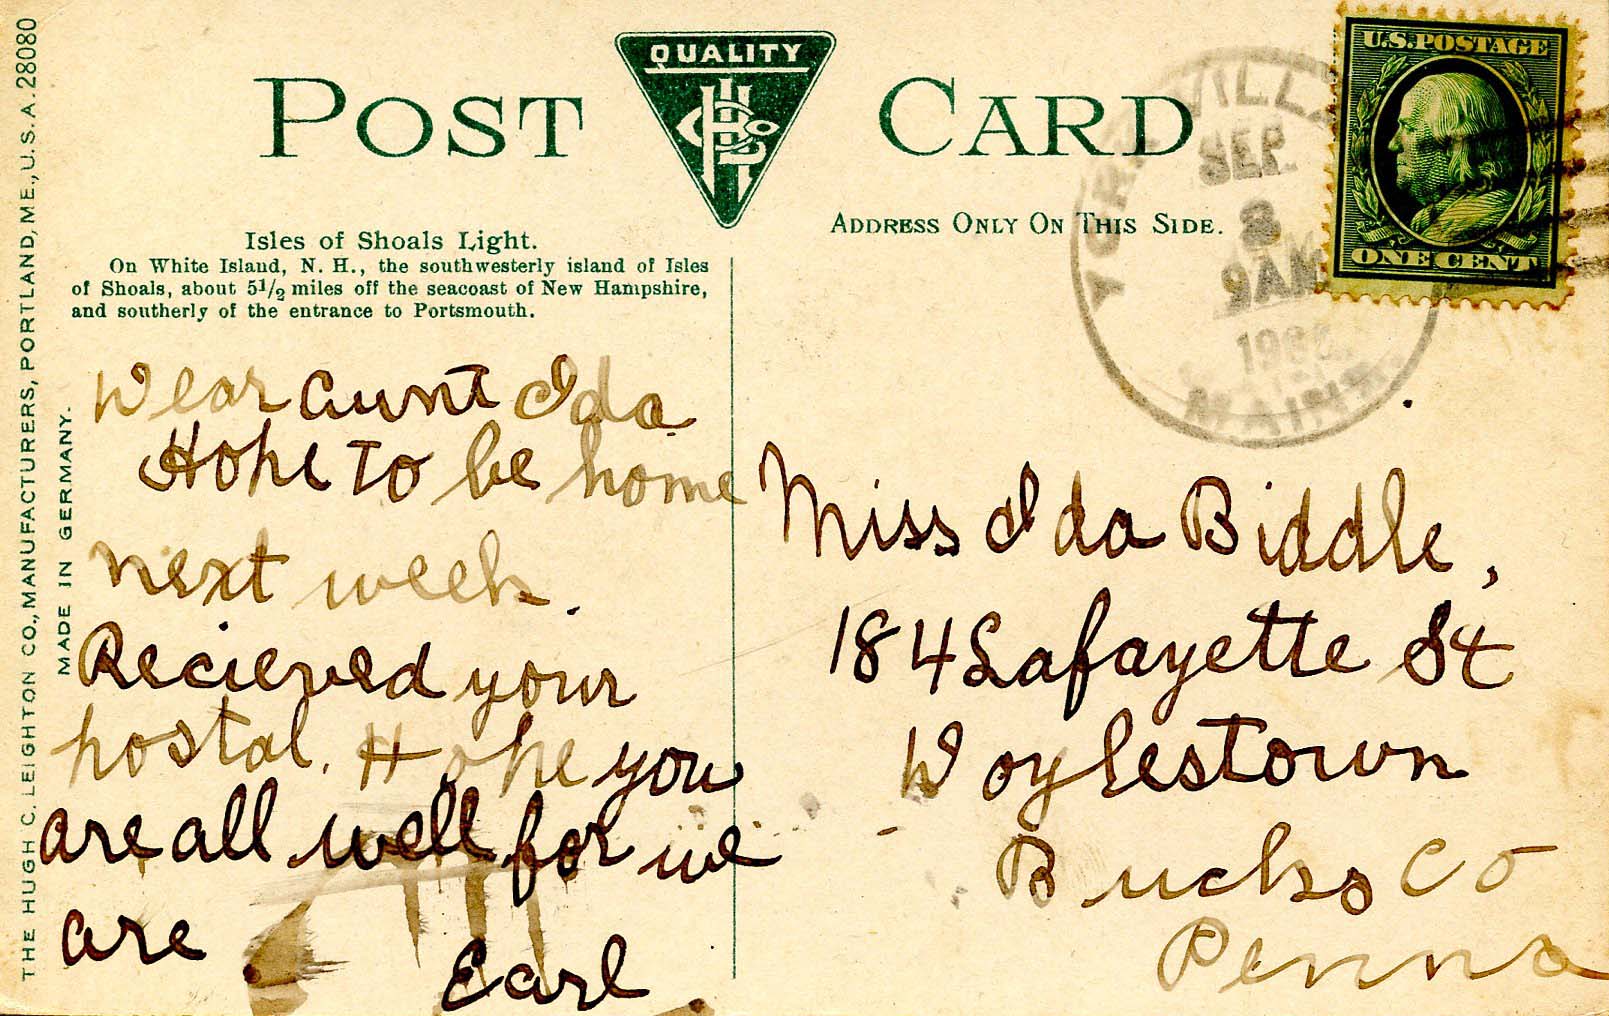 THE HUGH C. LEIGHTON CO., MANUFACTURERS, PORTLAND, ME., U.S.A. 28080
MADE IN GERMANY.
POST CARD
QUALITY
Isles of Shoals Light.
On White Island, N. H., the southwesterly island of Isles
of Shoals, about 5 1/2 miles off the seacoast of New Hampshire,
and southerly of the entrance to Portsmouth.
ADDRESS ONLY ON THIS SIDE.
U.S. POSTAGE
ONE CENT
SEP
9 AM
MAINE
Dear Aunt Ida
Hope to be home
next week.
Recieved your
postal. Hope you
are all well for we
are
Earl
Miss Ida Biddle,
184 Lafayette St
Doylestown
Bucks Co
Penna